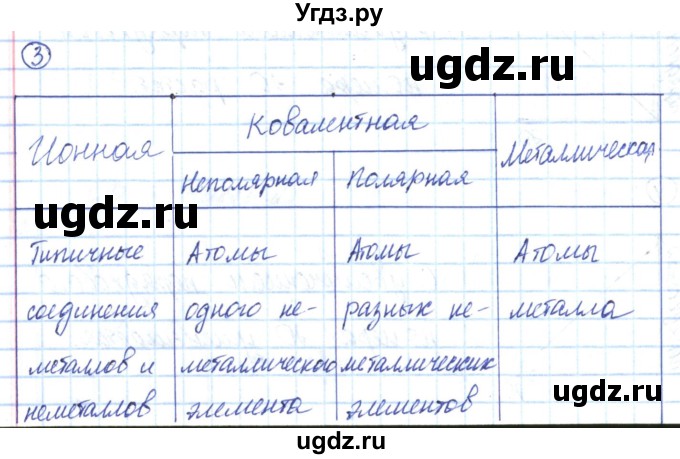 Угдз.ру
3
ugdz.ru
Ионная
Ковалентная
Металлическая
Неполярная
Полярная
ugdz.ru
Типичные
соединения
металлов и
неметаллов
Атомы
одного не-
металлического
элемента
Атомы
разных не-
металлических
элементов
Атомы
металла
ugdz.ru
ugdz.ru